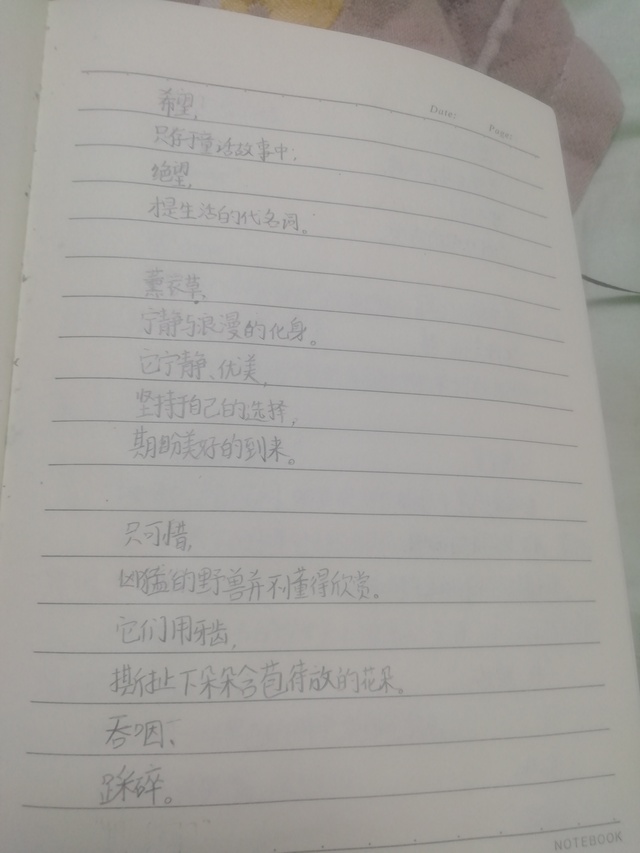 Date: Page:
希望,
只存于童话故事中;
绝望,
才是生活的代名词。
薰衣草,
宁静与浪漫的化身。
它宁静、优美,
坚持于自己的选择,
期盼美好的到来。
只可惜,
凶猛的野兽并不懂得欣赏。
它们用牙齿,
撕扯下朵朵含苞待放的花朵。
吞咽、
踩碎。
NOTEBOOK